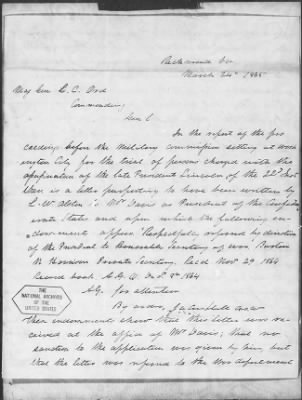 Richmond Va
March 24th 1865
Maj Gen E. O. C. Ord
Commanding
Gen l
In the report of the pro
ceedings before the Military commission setting at Wash
ington City for the trial of persons charged with the
assassination of the late President Lincoln of the 22d
there is a letter purporting to have been written by
L. W. Alston to Mr Davis as President of the Confed
erate States and upon which the following en
dorsement appears "Respectfully referred by direction
of the President to Honorable Secretary of War" Burton
N Harrison Private Secretary. Recd Nov 29 1864
Record book A.G.O. Dec 8th 1864
A.G. for attention
By order, J A Campbell A S W
These endorsements show that this letter was re
ceived at the office of Mr Davis; that no
sanction to the application was given by him, but
that the letter was referred to the War department
THE
NATIONAL ARCHIVES
OF THE
UNITED STATES